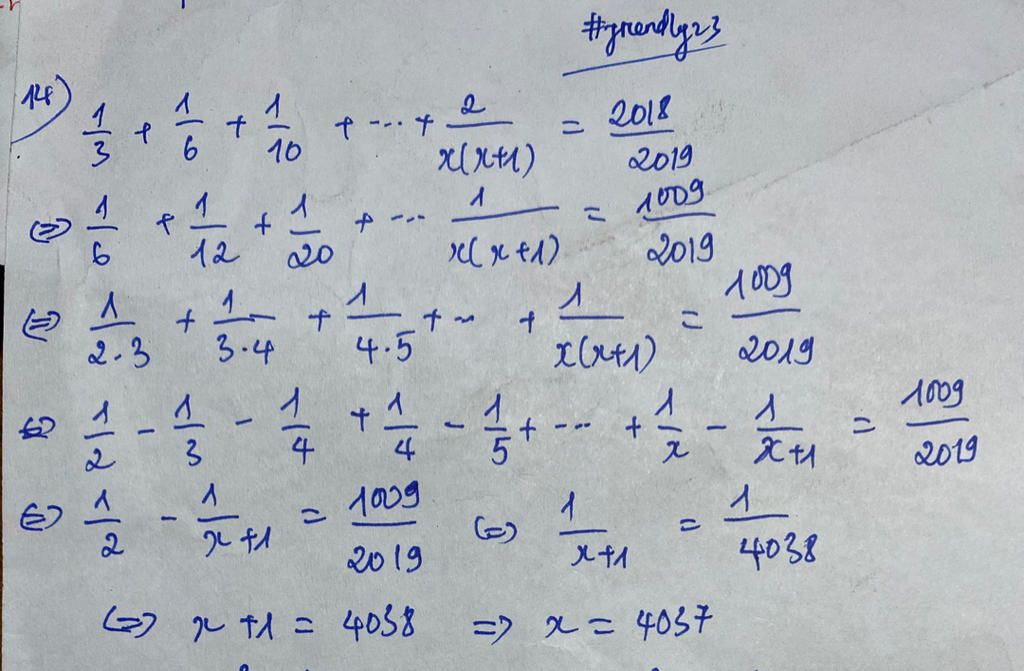 #friendly23
14) 1/3 + 1/6 + 1/10 + ... + 2/x(x+1) = 2018/2019
⇔ 1/6 + 1/12 + 1/20 + ... 1/x(x+1) = 1009/2019
⇔ 1/2.3 + 1/3.4 + 1/4.5 + ... + 1/x(x+1) = 1009/2019
⇔ 1/2 - 1/3 - 1/4 + 1/4 - 1/5 + ... + 1/x - 1/x+1 = 1009/2019
⇔ 1/2 - 1/x+1 = 1009/2019 ⇔ 1/x+1 = 1/4038
⇔ x+1 = 4038 ⇒ x = 4037